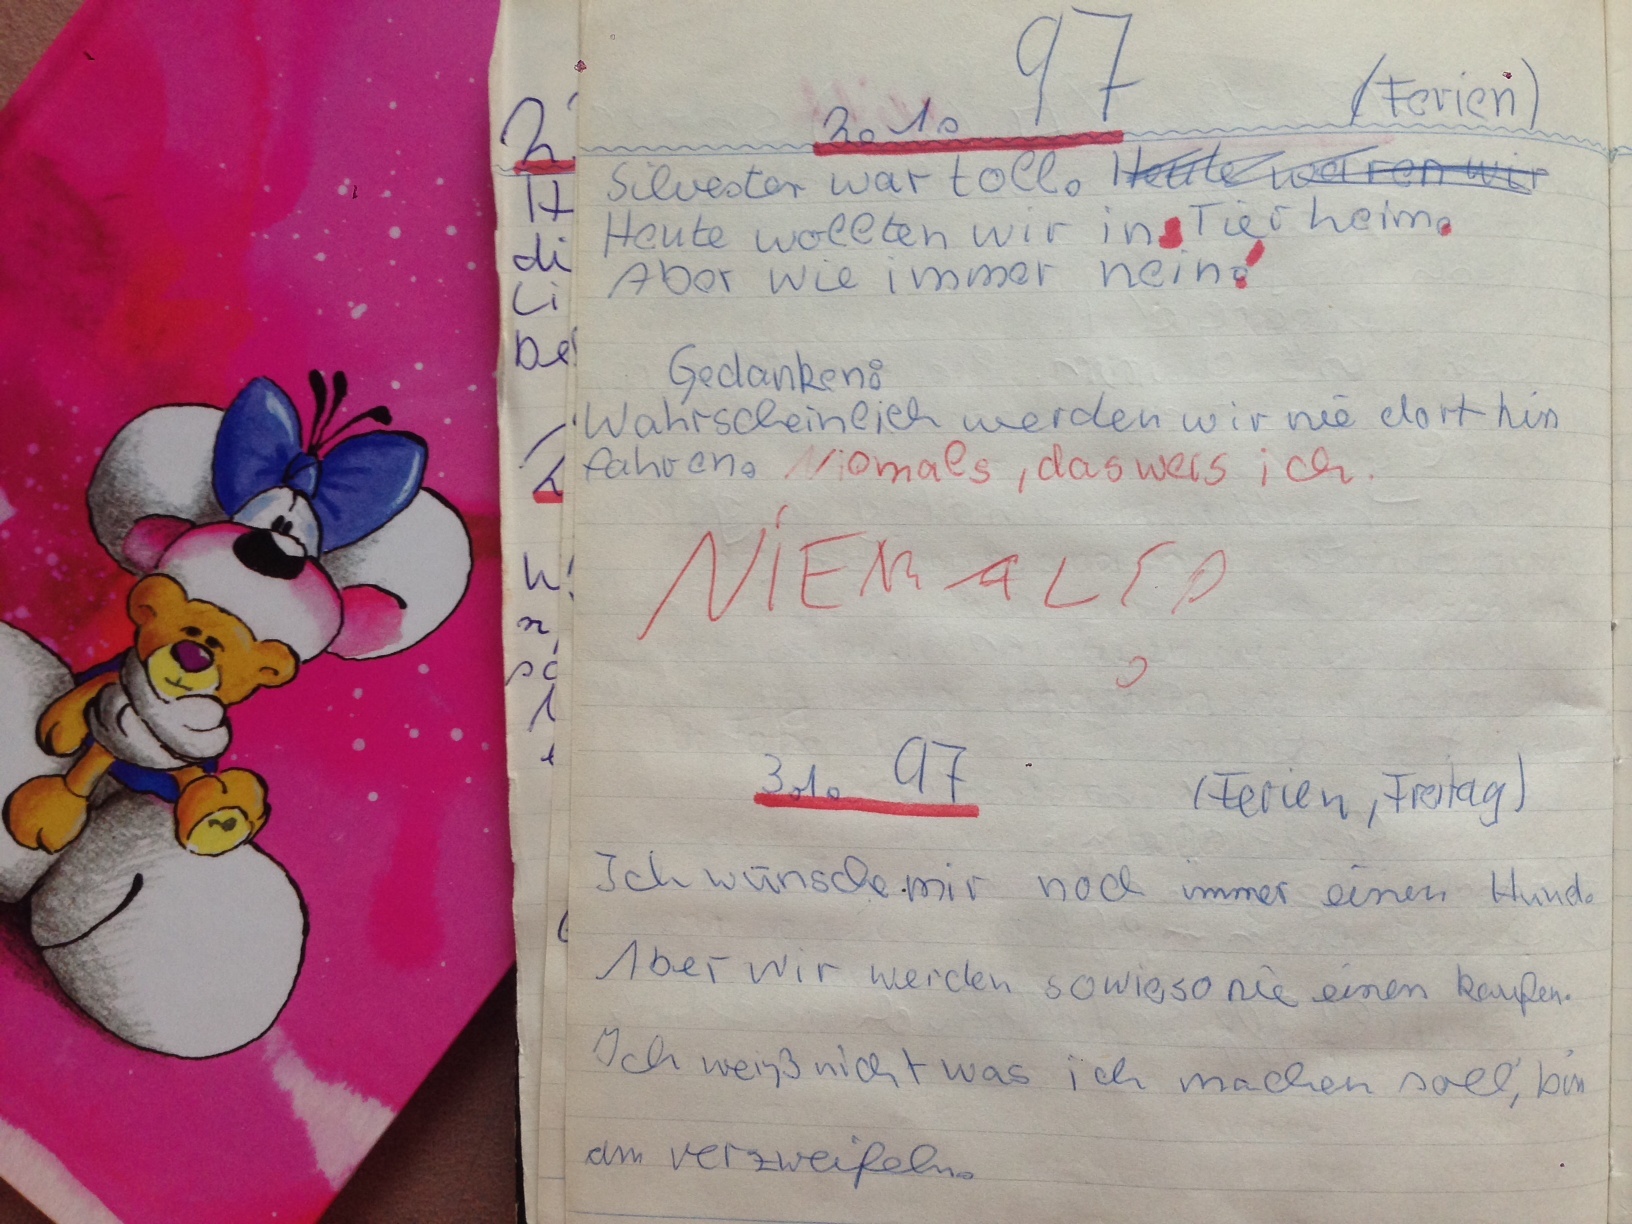 2. 1. 97 (Ferien)
Silvester war toll. Heute waren wir
Heute wollten wir in Tierheim.
Aber wie immer nein!
Gedanken:
Wahrscheinlich werden wir nie dort hin
fahren. Niemals, das weis ich.
NIEMALS
3.1. 97 (Ferien, Freitag)
Ich wünsche mir noch immer einen Hund.
Aber wir werden sowieso nie einen kaufen.
Ich weiß nicht was ich machen soll, bin
am verzweifeln.